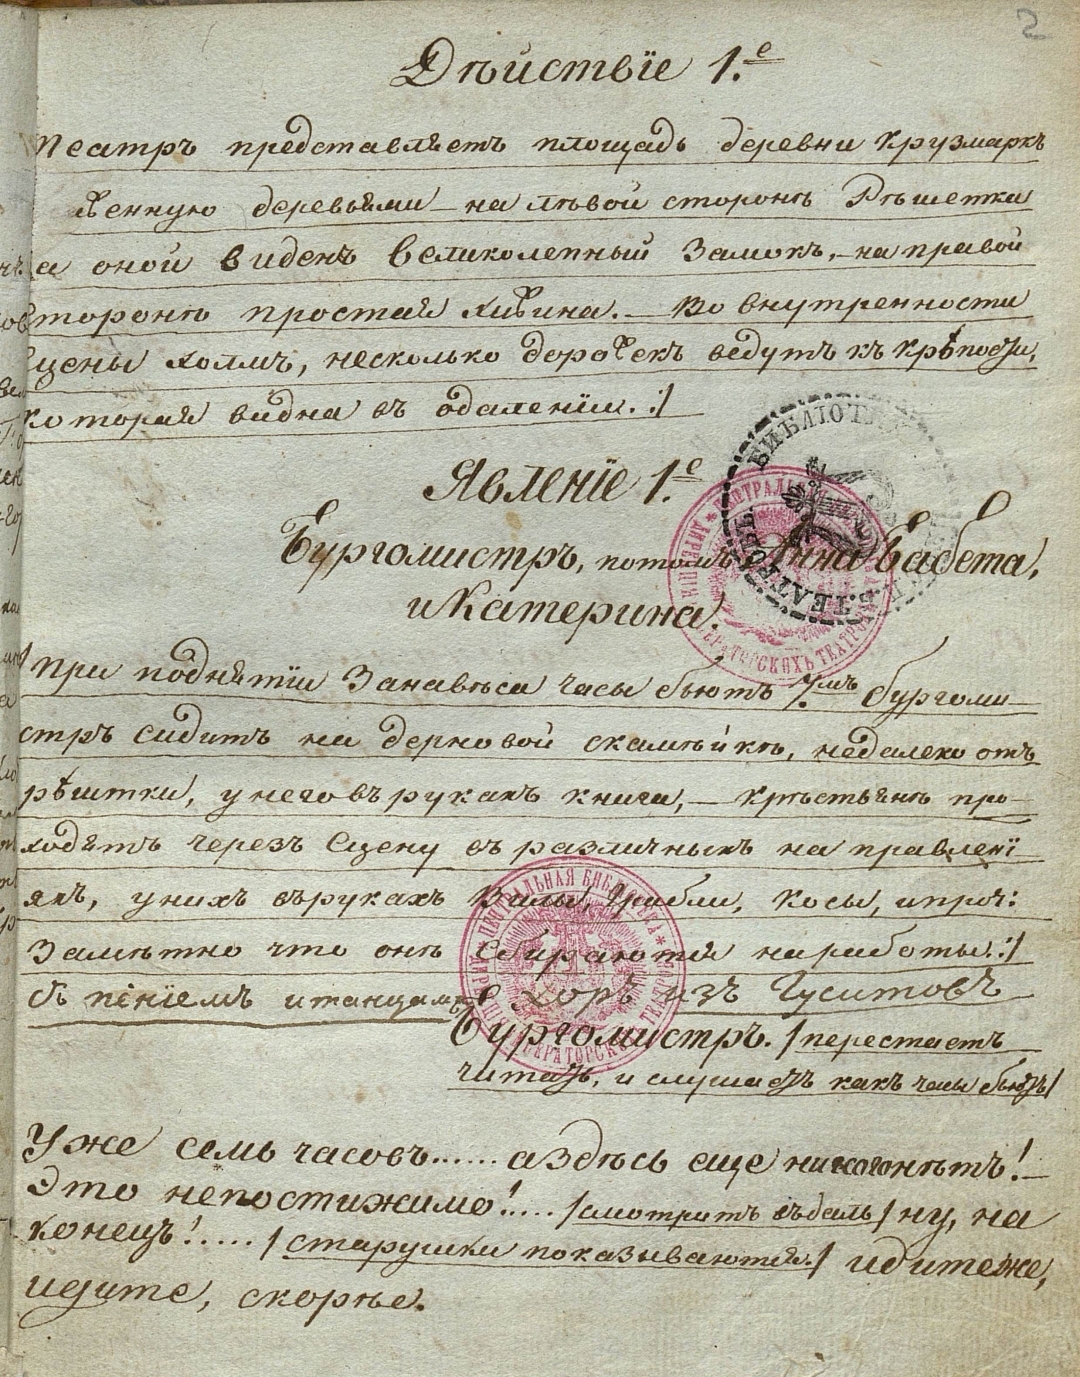 2
Дѣйствїе 1.е
Театръ представляетъ площадь деревни Крузмаркъ
деревьями на лѣвой сторонѣ Рѣшетка
за оной виденъ великолепный Замокъ, на правой
сторонѣ простая хижина. Во внутренности
Сцены холмъ, несколько дорожекъ ведутъ къ Крѣпости,
которая видна въ одаленїи. :/
Явленїе 1.е
Бургомистръ, потомъ Анна Бабета,
и Катерина.
/при поднятїи Занавѣса часы бьютъ 7.мъ бургоми-
стръ сидитъ на дерновой скамѣйкѣ, недалеко отъ
рѣштки, у него въ рукахъ книга, - крѣстьянѣ про-
ходятъ черезъ Сцену въ различныхъ на правленї
яхъ, у нихъ въ рукахъ Вилы, Грабли, Косы, и проч:
Замѣтно что онѣ сбираются на работы. :/
съ пѣнїемъ и танцами Хоръ изъ Гуситовъ
Бургомистръ. /перестаетъ
читать, и слушаетъ какъ часы бьютъ/
Уже семь часовъ...... а здѣсь еще никого нѣтъ! -
Это непостижимо!.... /смотритъ въ даль/ ну, на
конецъ!..... /старушки показываются./ идите же,
идите, скорѣе.